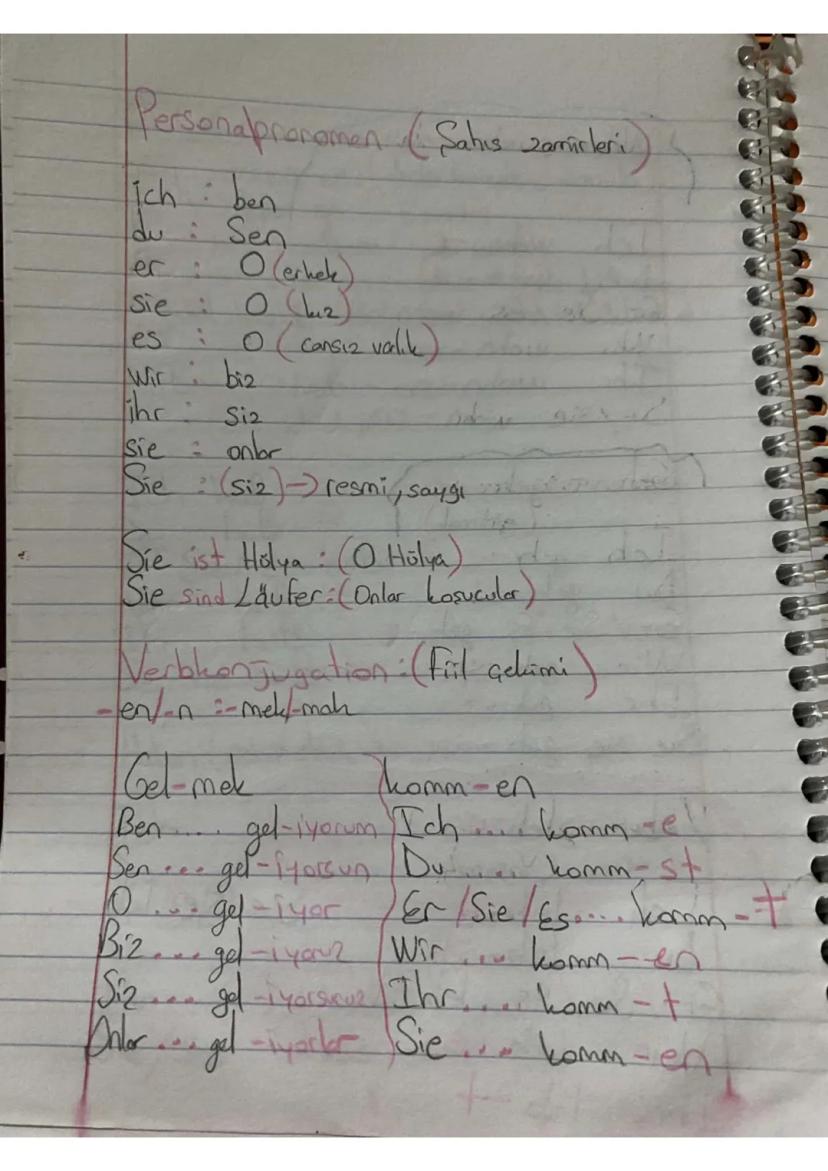 Personalpronomen (: Şahıs zamirleri)
ich : ben
du : Sen
er : O (erkek)
sie : O (kız)
es : O (cansız varlık)
Wir : biz
ihr : siz
sie : onlar
Sie : (siz) → resmi, saygı
Sie ist Hülya : (O Hülya)
Sie sind Läufer : (Onlar koşucular)
Verbkonjugation : (Fiil çekimi)
-en/-n :-mek/-mak
Gel-mek komm-en
Ben .... gel-iyorum Ich .... komm-e
Sen ... gel-iyorsun Du .... komm-st
O .... gel-iyor Er/Sie/Es.... komm-t
Biz .... gel-iyoruz Wir .... komm-en
Siz .... gel-iyorsunuz Ihr .... komm-t
Onlar ... gel-iyorlar Sie .... komm-en